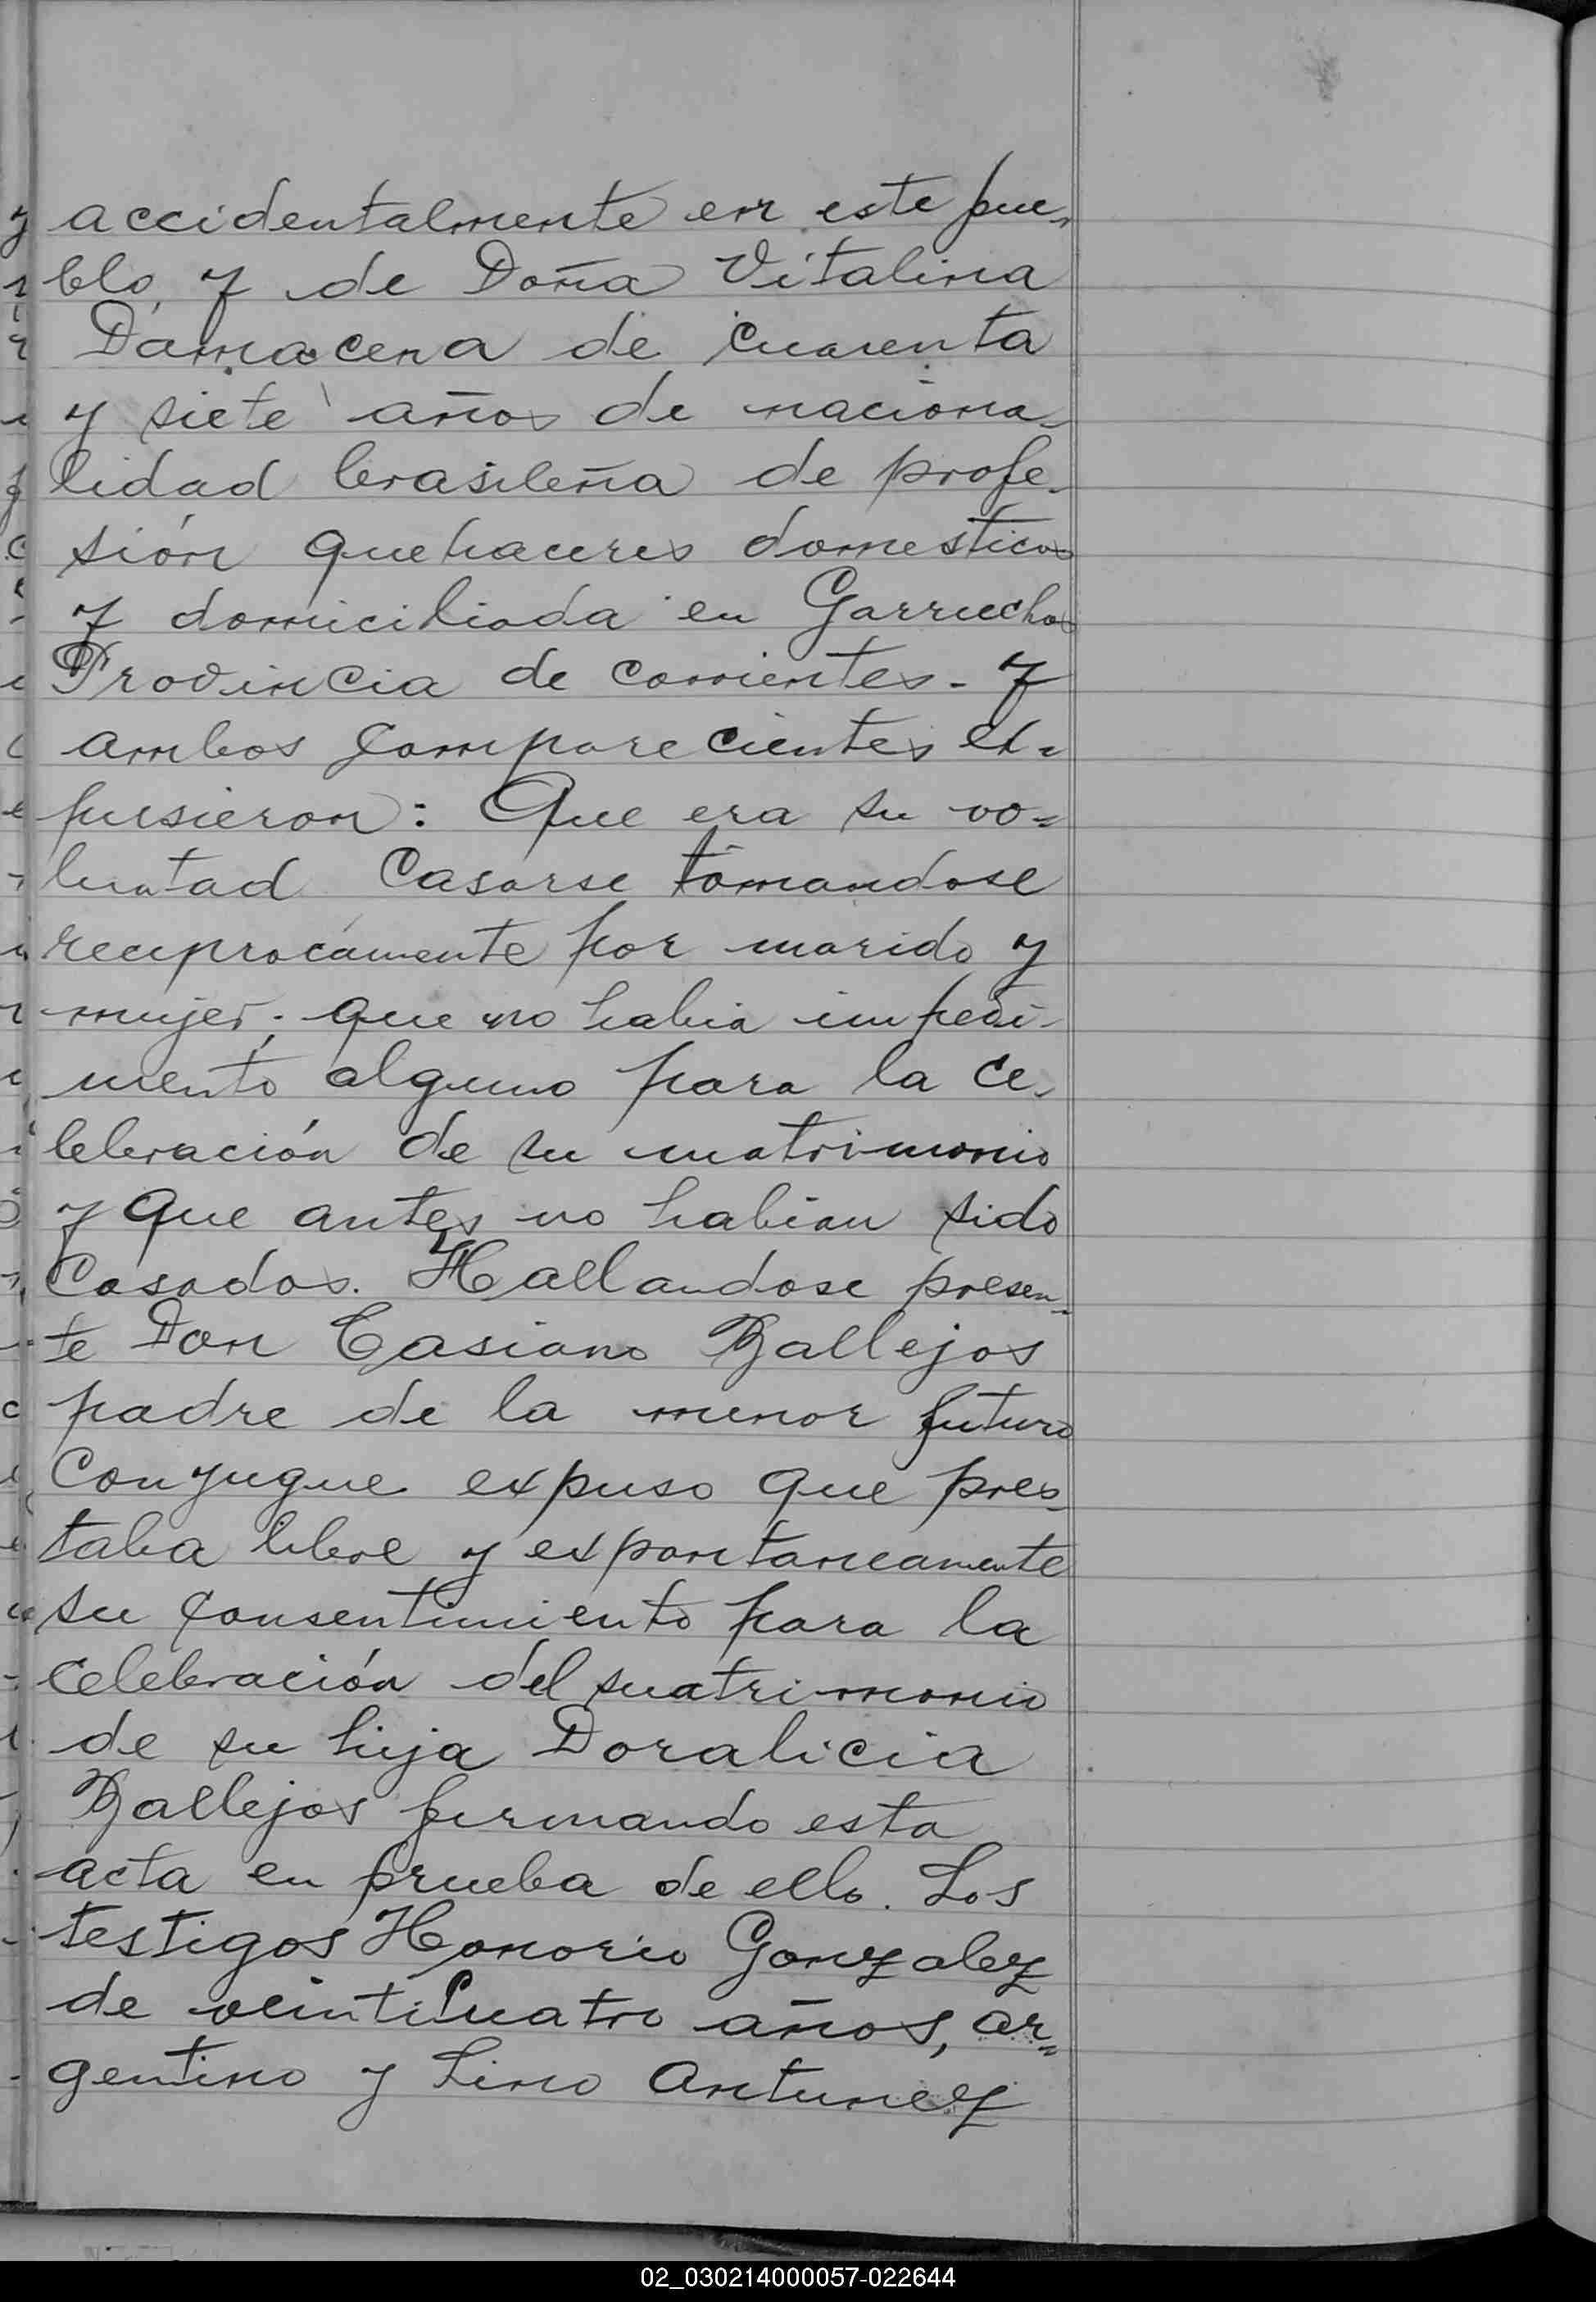 accidentalmente en este pue-
blo, y de Doña Vitalina
Damacena de cuarenta
y siete años de naciona-
lidad brasileña de profe-
sión quehaceres domesticos
y domiciliada en Garruchos
Provincia de Corrientes- y
ambos comparecientes ex-
pusieron: Que era su vo=
luntad casarse tomandose
reciprocamente por marido y
mujer; que no habia impedi-
mento alguno para la ce-
lebración de su matrimonio
y que antes no habian sido
casados. Hallandose presen-
te Don Casiano Ballejos
padre de la menor futura
conyugue expuso que pres-
taba libre y expontaneamente
su consentimiento para la
celebración del matrimonio
de su hija Doralicia
Ballejos firmando esta
acta en prueba de ello. Los
testigos Honorio Gonzalez
de veinticuatro años, ar=
gentino y Lino Antunez
02_030214000057-022644